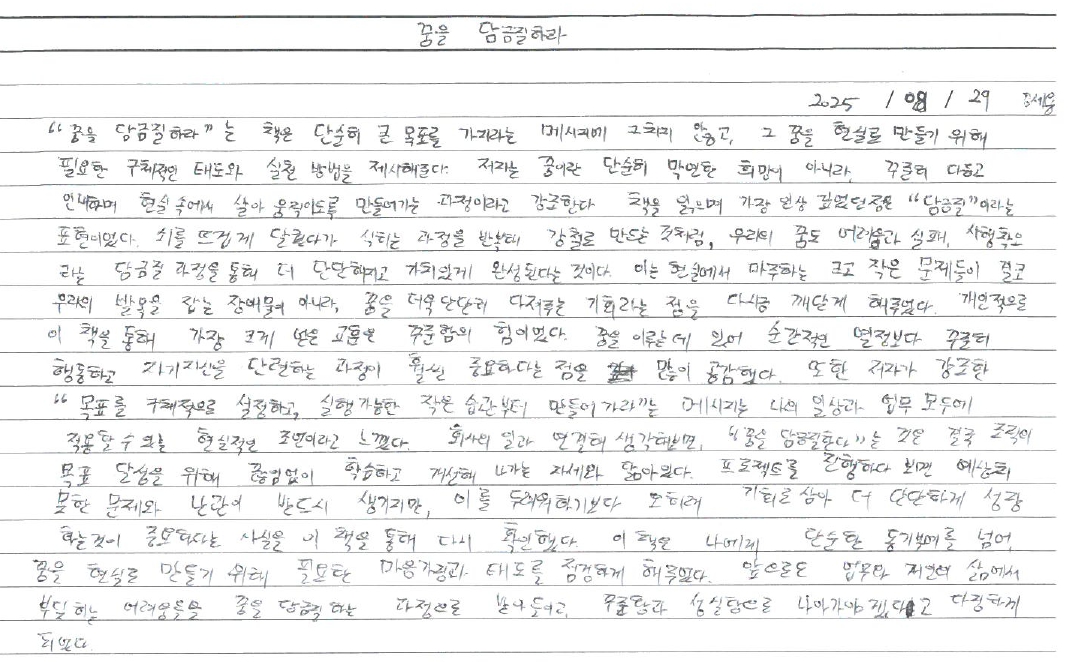 꿈을 담금질하라
2025 / 08 / 29
"꿈을 담금질하라"는 책은 단순히 큰 목표를 가지라는 메시지에 그치지 않고, 그 꿈을 현실로 만들기 위해
필요한 구체적인 태도와 실천 방법을 제시해준다. 저자는 꿈이란 단순히 막연한 희망이 아니라, 꾸준히 다듬고
인내하며 현실 속에서 살아 움직이도록 만들어가는 과정이라고 강조한다 책을 읽으며 가장 인상 깊었던점은 "담금질"이라는
표현이었다. 쇠를 뜨겁게 달궜다가 식히는 과정을 반복해 강철로 만드는 것처럼, 우리의 꿈도 어려움과 실패, 시행착오
라는 담금질 과정을 통해 더 단단해지고 가치있게 완성된다는 것이다. 이는 현실에서 마주하는 크고 작은 문제들이 결코
우리의 발목을 잡는 장애물이 아니라, 꿈을 더욱 단단히 다져주는 기회라는 점을 다시금 깨닫게 해주었다. 개인적으로
이 책을 통해 가장 크게 얻은 교훈은 꾸준함의 힘이었다. 꿈을 이루는데 있어 순간적인 열정보다 꾸준히
행동하고 자기자신을 단련하는 과정이 훨씬 중요하다는 점을 많이 공감했다. 또한 저자가 강조한
"목표를 구체적으로 설정하고, 실행가능한 작은 습관부터 만들어 가라"는 메시지는 나의 일상과 업무 모두에
적용할 수 있는 현실적인 조언이라고 느꼈다. 회사의 일과 연결해 생각해보면, "꿈을 담금질한다"는 것은 결국 조직의
목표 달성을 위해 끊임없이 학습하고 개선해 나가는 자세와 닮아있다. 프로젝트를 진행하다 보면 예상치
못한 문제와 난관이 반드시 생기지만, 이를 두려워하기보다 오히려 기회로 삼아 더 단단하게 성장
하는것이 중요하다는 사실을 이 책을 통해 다시 확인했다. 이 책은 나에게 단순한 동기부여를 넘어,
꿈을 현실로 만들기 위해 필요한 마음가짐과 태도를 점검하게 해주었다. 앞으로도 업무와 개인의 삶에서
부딪히는 어려움들을 꿈을 담금질 하는 과정으로 받아들이고, 꾸준함과 성실함으로 나아가야겠다고 다짐하게
되었다.